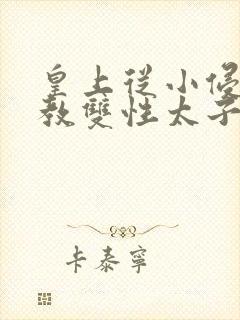 皇上從小
教雙性太子
卡泰寧